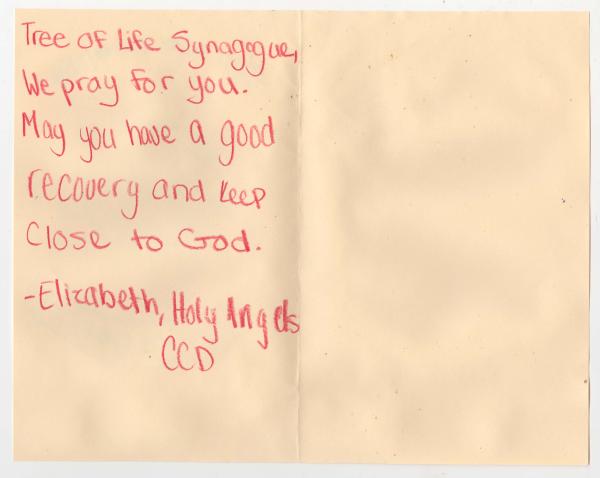 Tree of Life Synagogue,
We pray for you.
May you have a good
recovery and keep
close to God.
-Elizabeth, Holy Angels
CCD